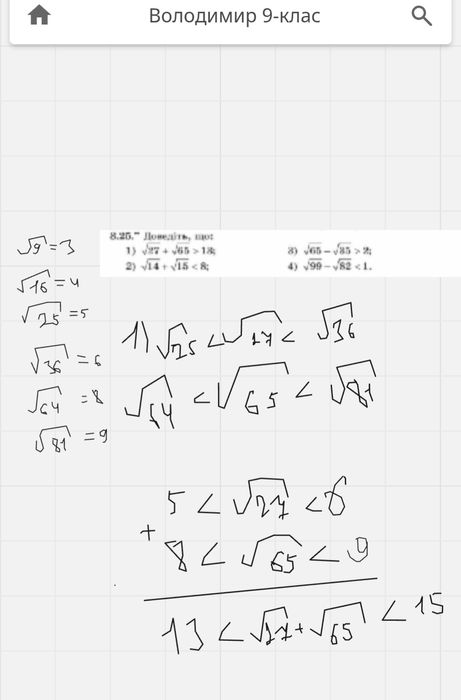 Володимир 9-клас
8.25.** Доведіть, що:
1) √27 + √65 > 13;
2) √14 + √15 < 8;
3) √65 − √35 > 2;
4) √99 − √82 < 1.
√9 = 3
√16 = 4
√25 = 5
√36 = 6
√64 = 8
√81 = 9
1) √25 < √27 < √36
√64 < √65 < √81
5 < √27 < 6
+
8 < √65 < 9
13 < √27 + √65 < 15